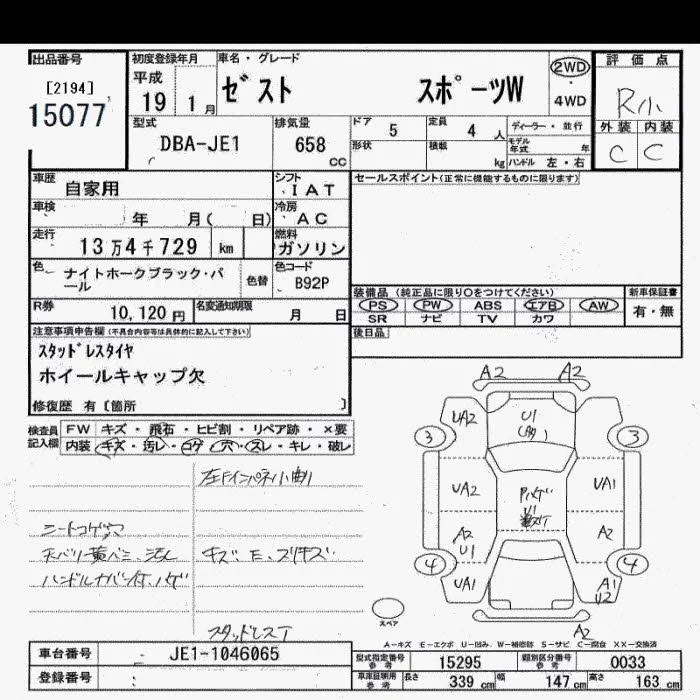 出品番号 初度登録年月 車名・グレード 評価点
[2194] 平成 ゼスト スポーツW 2WD R小
15077 19 1月 4WD
型式 排気量 ドア 5 定員 4人 ディーラー・並行 外装 内装
DBA-JE1 658 cc 形状 積載 kg モデル年式 年 ハンドル 左・右 C C
車歴 自家用 シフト IAT セールスポイント(正常に機能するものに限ります)
車検 年 月( 日) 冷房 AC
走行 13万4千729 km 燃料 ガソリン
色 ナイトホークブラック・パール 色替 色コード B92P
装備品 (純正品に限り○をつけてください) 新車保証書
R券 10,120円 名変通知期限 月 日 PS PW ABS エアB AW 有・無
SR ナビ TV カワ
注意事項申告欄(不具合内容等は具体的に記入して下さい) 後日品
スタッドレスタイヤ
ホイールキャップ欠
修復歴 有〔箇所 〕
検査員記入欄 FW キズ・飛石・ヒビ割・リペア跡・×要
内装 キズ・汚レ・コゲ・穴・スレ・キレ・破レ
左Fインパネル小曲り
シートコゲ穴
キズ、E、スリキズ
スタッドレスT
A2 A2
UA2 U1
3 3
UA2 U1 UA1
A2 U1 A2
4 4
UA1 A1 U2
スペア A2
A-キズ E-エクボ U-凹み W-補修跡 S-サビ C-腐食 XX-交換済
車台番号 JE1-1046065 型式指定番号 参考 15295 類別区分番号 参考 0033
登録番号 車庫証明用 参考 長さ 339cm 幅 147cm 高さ 163cm